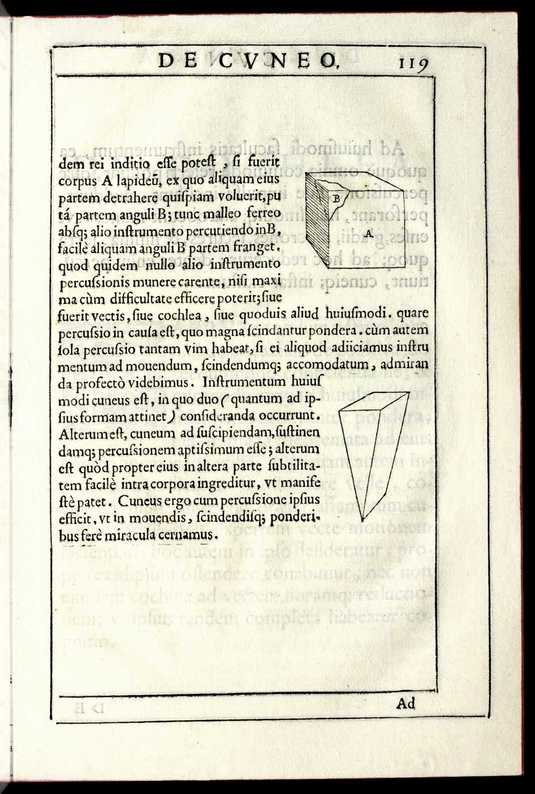 DE CVNEO.
119
dem rei inditio esse potest, si fuerit
corpus A lapideū, ex quo aliquam eius
partem detrahere quispiam voluerit, pu
tá partem anguli B; tunc malleo ferreo
absq; alio instrumento percutiendo in B,
facilè aliquam anguli B partem franget.
quod quidem nullo alio instrumento
percussionis munere carente, nisi maxi
ma cùm difficultate efficere poterit; siue
fuerit vectis, siue cochlea, siue quoduis aliud huiusmodi. quare
percussio in causa est, quo magna scindantur pondera. cùm autem
sola percussio tantam vim habeat, si ei aliquod adiiciamus instru
mentum ad mouendum, scindendumq; accomodatum, admiran
da profectò videbimus. Instrumentum huius
modi cuneus est, in quo duo (quantum ad ip-
sius formam attinet) consideranda occurrunt.
Alterum est, cuneum ad suscipiendam, sustinen
damq; percussionem aptissimum esse; alterum
est quòd propter eius in altera parte subtilita-
tem facilè intra corpora ingreditur, vt manife
stè patet. Cuneus ergo cum percussione ipsius
efficit, vt in mouendis, scindendisq; ponderi-
bus ferè miracula cernamus.
B
A
Ad